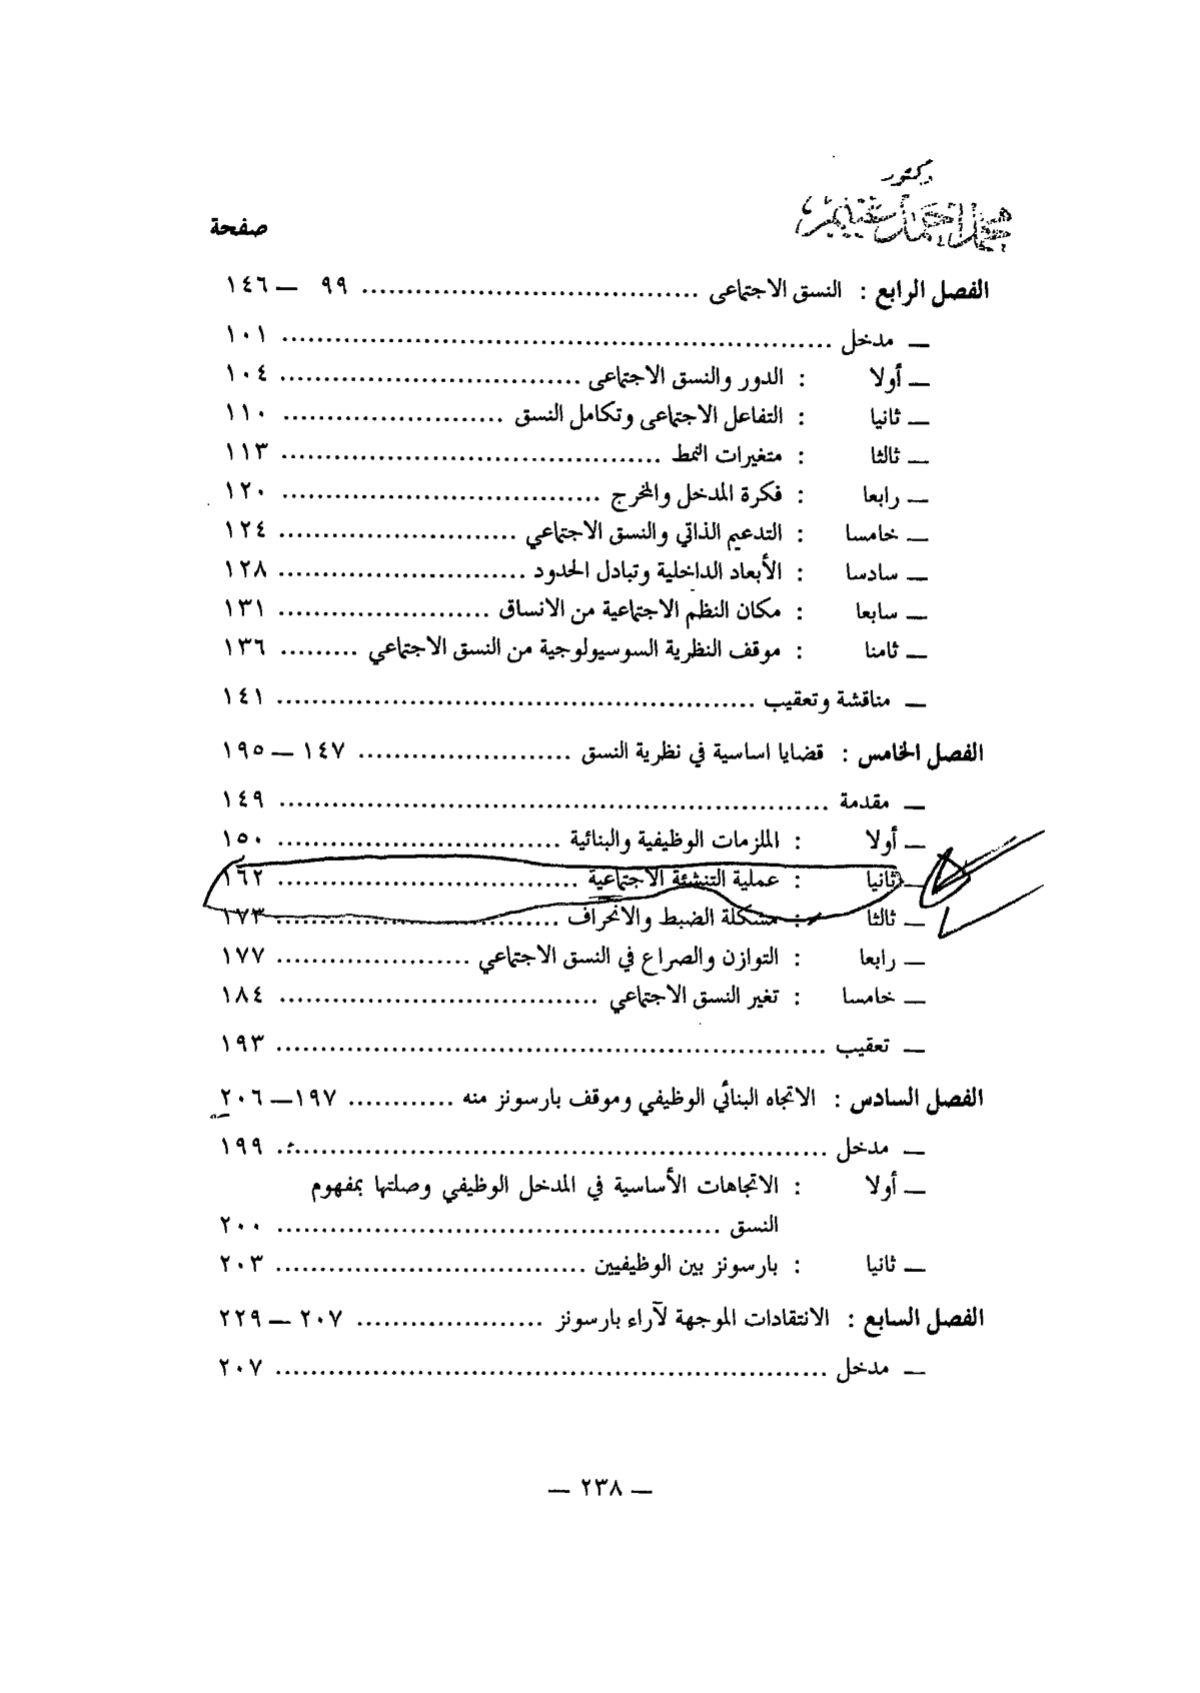 دكتور
محمد أحمد غنيم
صفحة
الفصل الرابع : النسق الاجتماعى ...................................... ٩٩ — ١٤٦
— مدخل ............................................................... ١٠١
— أولا : الدور والنسق الاجتماعى .................................. ١٠٤
— ثانيا : التفاعل الاجتماعى وتكامل النسق ......................... ١١٠
— ثالثا : متغيرات النمط ........................................... ١١٣
— رابعا : فكرة المدخل والمخرج .................................... ١٢٠
— خامسا : التدعيم الذاتي والنسق الاجتماعي ........................... ١٢٤
— سادسا : الأبعاد الداخلية وتبادل الحدود ............................ ١٢٨
— سابعا : مكان النظم الاجتماعية من الانساق ........................ ١٣١
— ثامنا : موقف النظرية السوسيولوجية من النسق الاجتماعي ......... ١٣٦
— مناقشة وتعقيب ...................................................... ١٤١
الفصل الخامس : قضايا اساسية في نظرية النسق ........................ ١٤٧ — ١٩٥
— مقدمة ............................................................... ١٤٩
— أولا : الملزمات الوظيفية والبنائية ................................ ١٥٠
— ثانيا : عملية التنشئة الاجتماعية .................................. ١٦٢
— ثالثا : مشكلة الضبط والانحراف ................................ ١٧٣
— رابعا : التوازن والصراع في النسق الاجتماعي ...................... ١٧٧
— خامسا : تغير النسق الاجتماعي .................................... ١٨٤
— تعقيب ............................................................... ١٩٣
الفصل السادس : الاتجاه البنائي الوظيفي وموقف بارسونز منه ............ ١٩٧— ٢٠٦
— مدخل ............................................................... ١٩٩
— أولا : الاتجاهات الأساسية في المدخل الوظيفي وصلتها بمفهوم
النسق .................................................. ٢٠٠
— ثانيا : بارسونز بين الوظيفيين ................................... ٢٠٣
الفصل السابع : الانتقادات الموجهة لآراء بارسونز ..................... ٢٠٧ — ٢٢٩
— مدخل ............................................................... ٢٠٧
— ٢٣٨ —